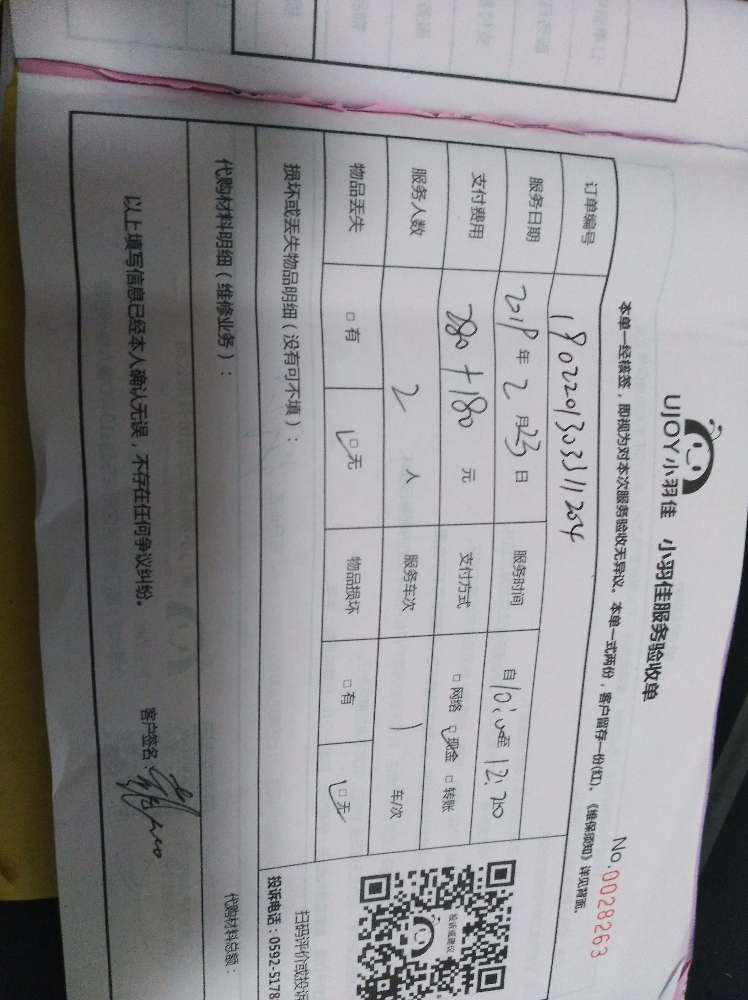 UJOY小羽佳 小羽佳服务验收单
No.0028263
本单一经核签，即视为对本次服务验收无异议。本单一式两份，客户留存一份(红)。《维保须知》详见背面。
订单编号 180220130331 1204
服务日期 2018年2月23日 服务时间 自10:00至12:20
支付费用 280+180元 支付方式 □网络 ☑现金 □转账
服务人数 2人 服务车次 1车/次
物品丢失 □有 ☑无 物品损坏 □有 ☑无
损坏或丢失物品明细（没有可不填）：
代购材料明细（维修业务）：
代购材料总额：
以上填写信息已经本人确认无误，不存在任何争议纠纷。
客户签名
投诉或建议
扫码评价或投诉
投诉电话：0592-5178